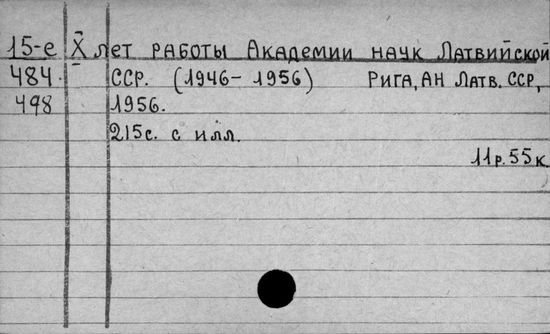 15-е X лет работы Академии наук Латвийской
484. ССР. (1946-1956) Рига, АН Латв. ССР,
498 1956.
215с. с илл.
11р.55к.